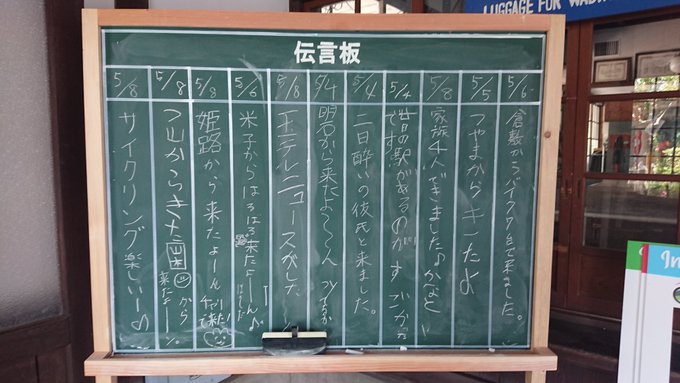 LUGGAGE FOR
伝言板
5/6
倉敷からバイク7台で来ました。
5/5
つやまから きたよ
5/8
家族4人できました♪
5/4
昔の駅があるのが
です
5/4
二日酔いの彼氏と来ました。
5/4
明石から来たよ〜〜ん
5/8
ニュースがした
5/6
米子からはるばる来たよーん♪
5/8
姫路から 来たよーん
チャリで来た!
5/8
つ山からきた
から
来たよー
5/8
サイクリング楽しいー♪
In